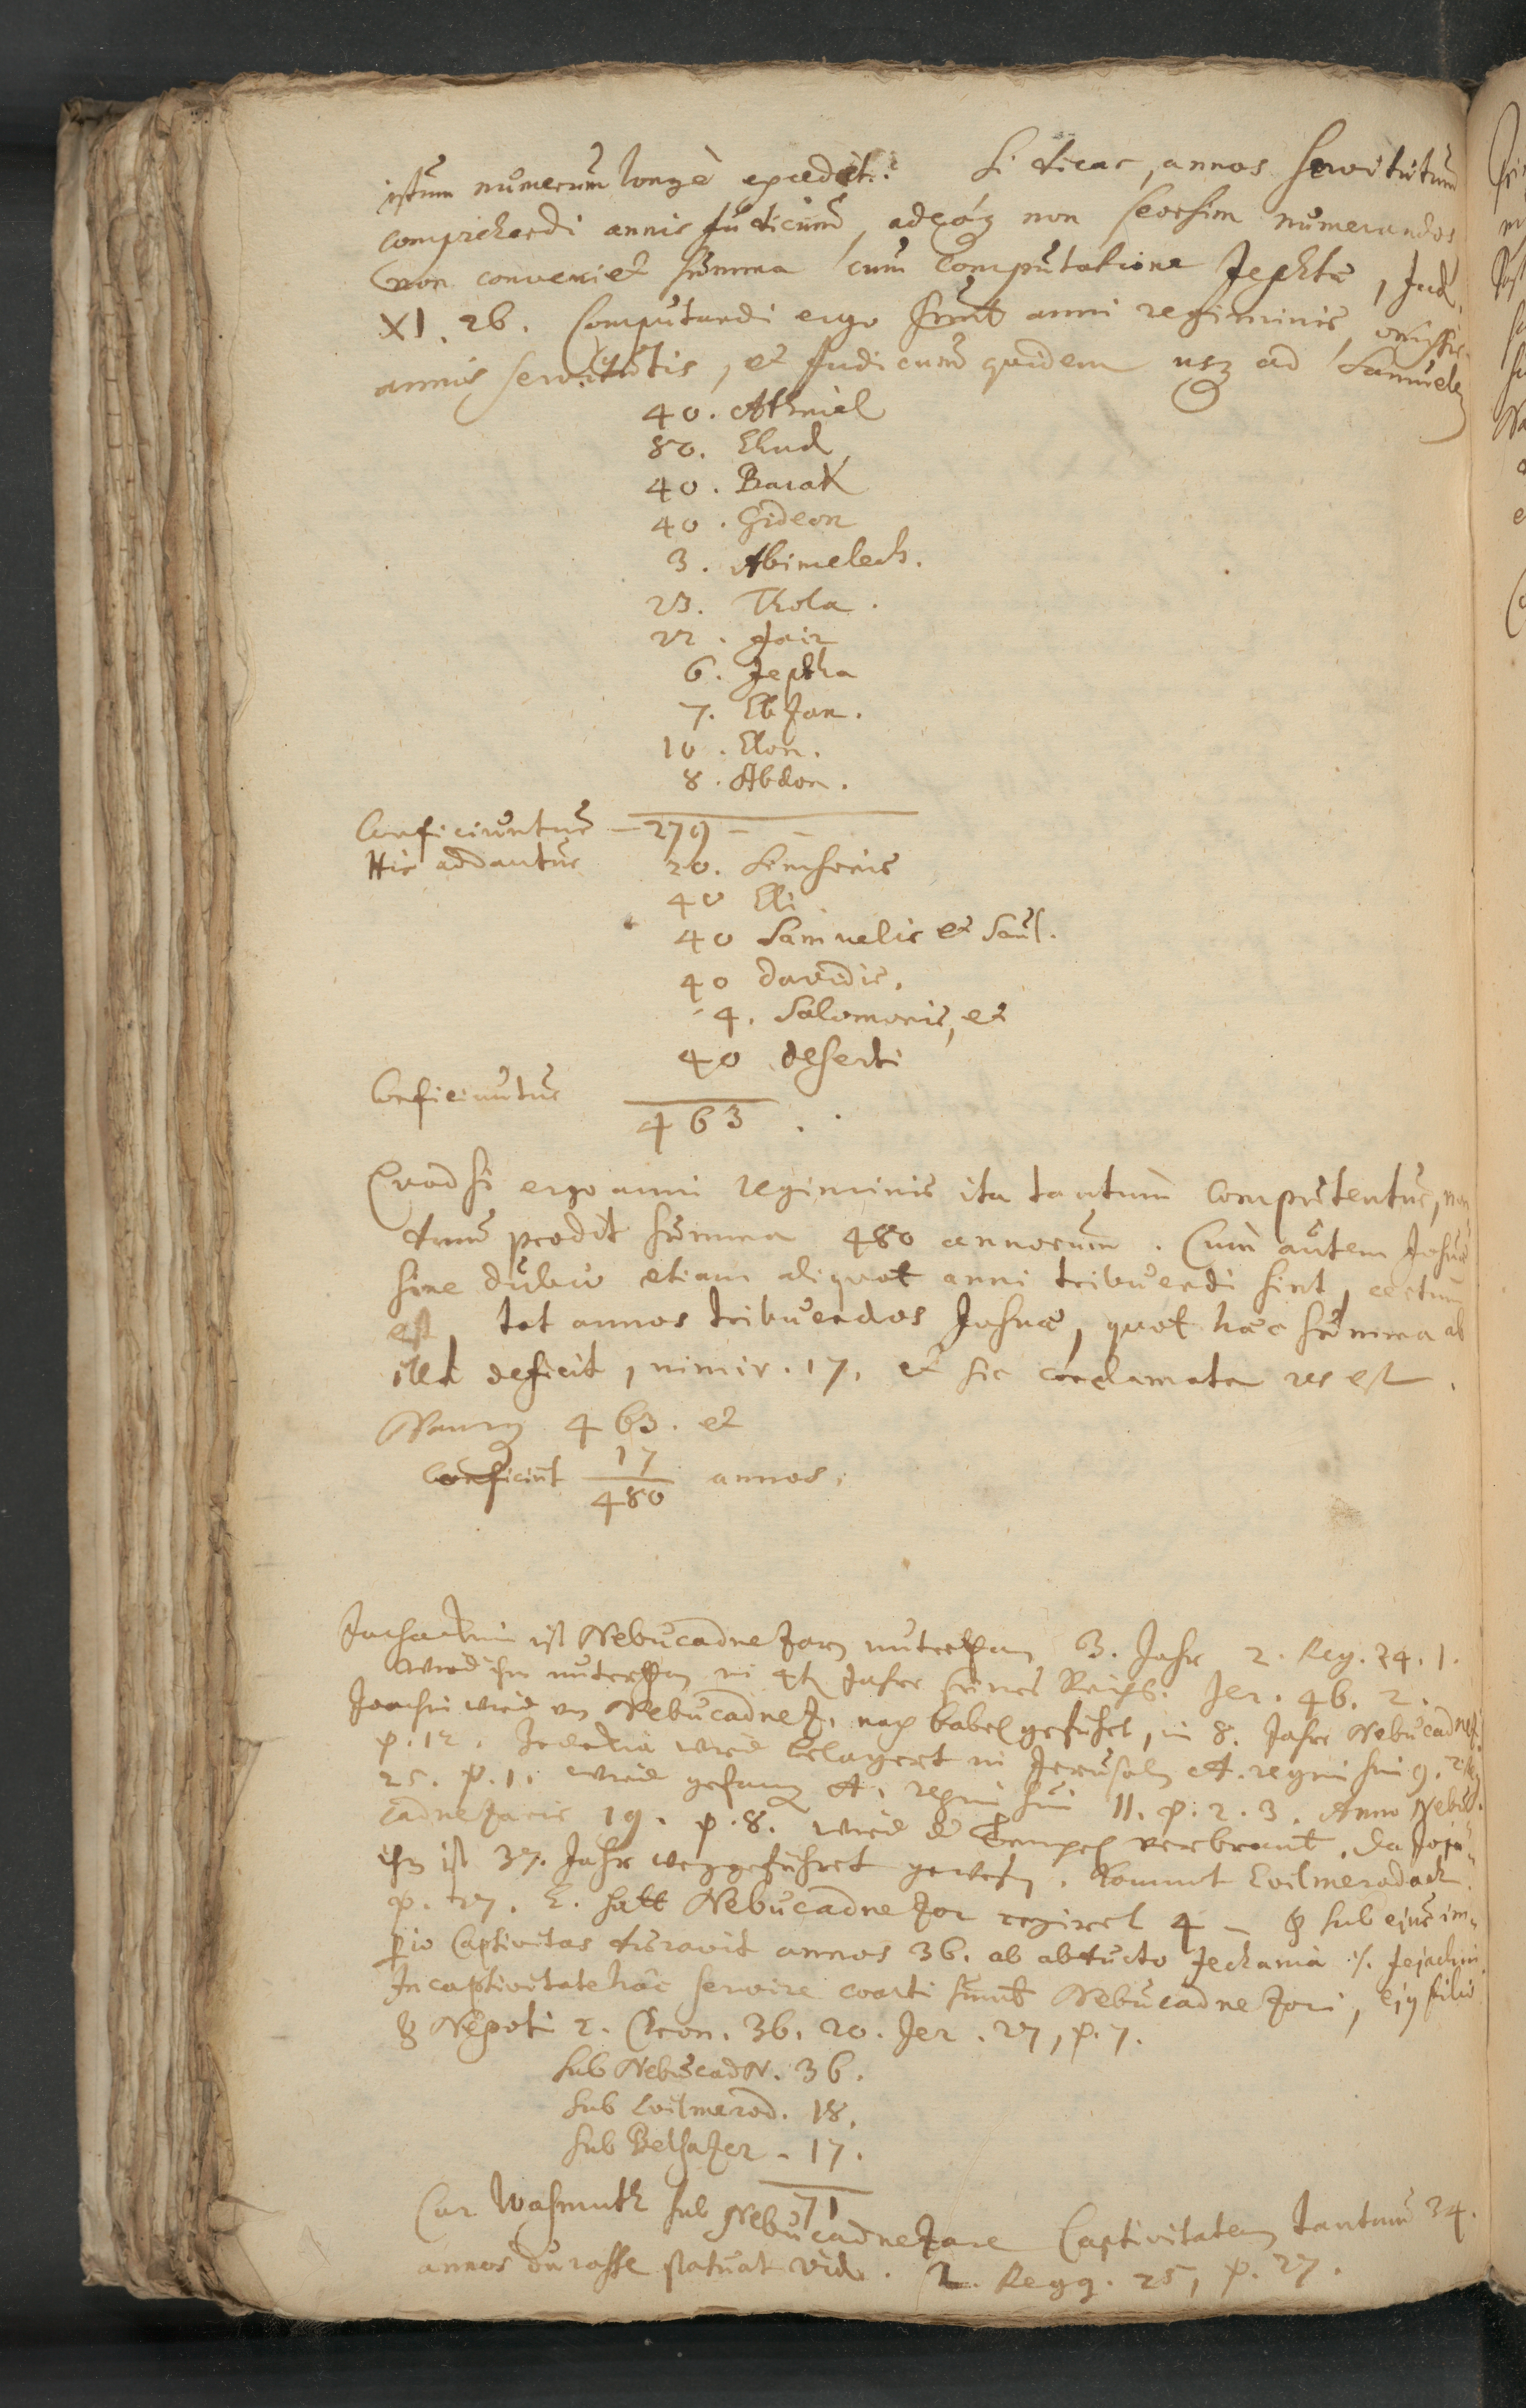 istum numerum longè excedit. Si dicas, annos servitutum
comprehendi annis Judicum, adeóq non seorsim numerandos
non conveniet summa cum computatione Jephtæ, Jud.
XI. 26. Computandi ergo sunt anni regiminis, omissis
annis servitutis, et Judicum quidem usq ad Samuelem
40. Athniel
80. Ehud
40. Barak
40. Gideon
3. Abimelech.
23. Thola.
22. Jair
6. Jephtha
7. Ebzan.
10. Elon.
8. Abdon.
Conficiuntur — 279 —
His addantur 20. Simsonis
40 Eli
40 Samuelis et Saul.
40 Davidis.
4. Salomonis, et
40 deserti
Conficiuntur 463.
Quod si ergo anni regiminis ita tantum computentur, non
dum prodit summa 480 annorum. Cum autem Josuæ
sine dubio etiam aliquot anni tribuendi sint, certum
est, tot annos tribuendos Josuæ, quot hæc summa ab
illa deficit, nimir. 17. et sic conclamata res est.
Namq 463. et
17
conficiunt 480 annos.
ist Nebucadnezarn unterthan 3. Jahr 2. Reg. 24. 1.
wird ihm unterthan im 4t Jahre seines Reichs. Jer. 46. 2.
Joachin wird von Nebucadnez. nach babel geführt, im 8. Jahre Nebucadnez.
p. 12. Zedekia wird belagert in Jerusalem A. regni sui 9. 2 Reg.
25. p. 1. wird gefang A. regni sui 11. p. 2. 3. Anno Nebu
cadnezaris 19. p. 8. wird d Tempel verbrant. da Joja
ist 37. Jahr weggeführet gewesen. kommt Evilmerodach
p. 27. E. hatt Nebucadnezor regiret 4 – & sub ejus im-
perio Captivitas duravit annos 36. ab abducto Jechania /. Jejachin.
In captivitate hâc servire coacti sunt Nebucadnezori, ejq filio
& Nepoti 2. Chron. 36. 20. Jer. 27, p. 7.
sub NebucadN. 36.
sub Evilmerod. 18.
sub Belsazer – 17.
71
Cur Wasmuth sub Nebucadnezare Captivitatem tantum 34.
annos durasse statuat vid. 2. Regg. 25, p. 27.